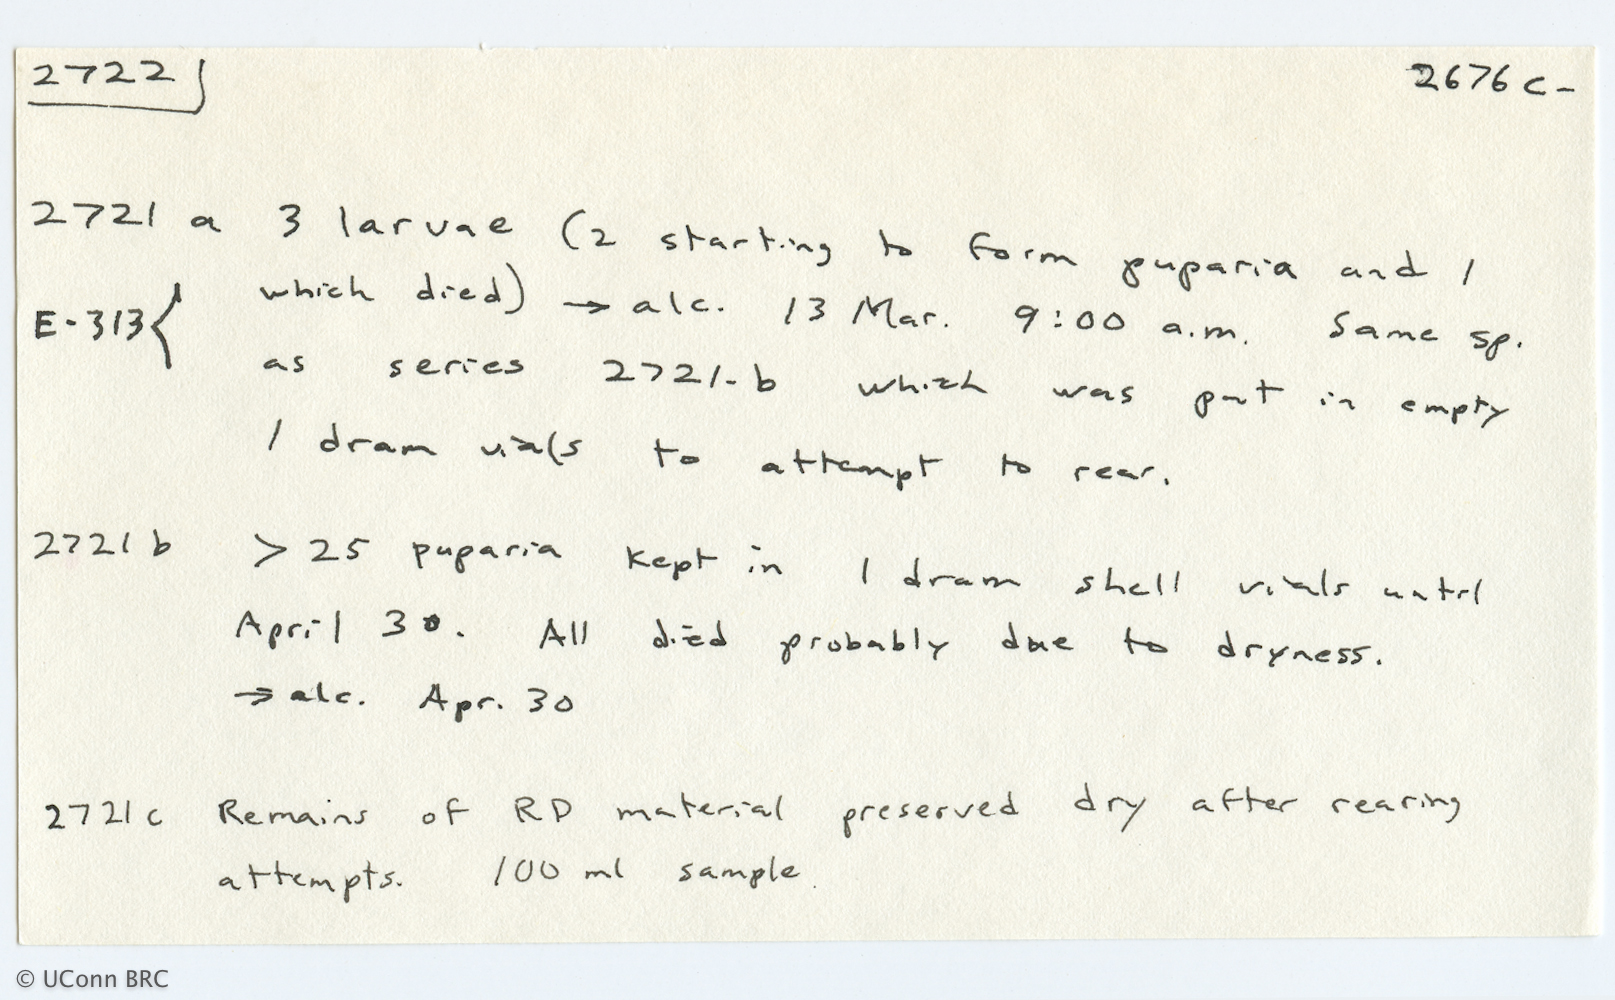 2722
2676 c -
2721 a 3 larvae (2 starting to form puparia and 1
which died) → alc. 13 Mar. 9:00 a.m. Same sp.
E-313{ as series 2721-b which was put in empty
1 dram vials to attempt to rear.
2721 b > 25 puparia kept in 1 dram shell vials until
April 30. All died probably due to dryness.
→ alc. Apr. 30
2721 c Remains of RD material preserved dry after rearing
attempts. 100 ml sample.
© UConn BRC